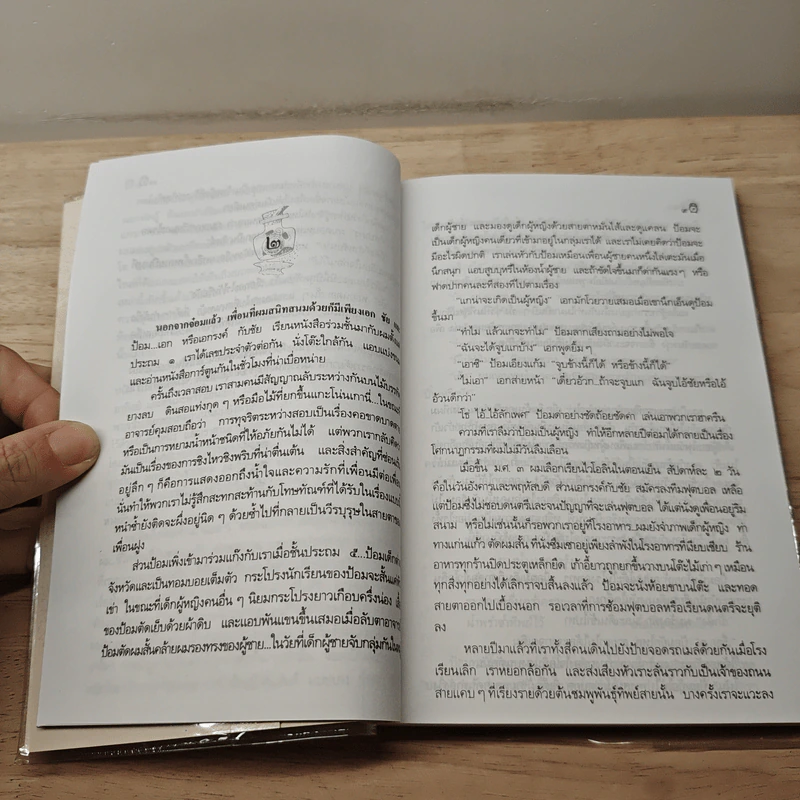 ๒
นอกจากจ๋อมแล้ว เพื่อนที่ผมสนิทสนมด้วยก็มีเพียงเอก ชัย
ป้อม...เอก หรือเอกรงค์ กับชัย เรียนหนังสือร่วมชั้นมากับผมตั้งแต่
ประถม ๑ เราได้เลขประจำตัวต่อกัน นั่งโต๊ะใกล้กัน แอบแบ่งขนม
และอ่านหนังสือการ์ตูนกันในชั่วโมงที่น่าเบื่อหน่าย
ครั้นถึงเวลาสอบ เราสามคนมีสัญญาณลับระหว่างกันบนไม้บรรทัด
ยางลบ ดินสอแท่งกุด ๆ หรือมือไม้ที่ยกขึ้นแกะโน่นเกานี่...ในขณะที่
อาจารย์คุมสอบถือว่า การทุจริตระหว่างสอบเป็นเรื่องคอขาดบาดตาย
หรือเป็นการหยามน้ำหน้าชนิดที่ให้อภัยกันไม่ได้ แต่พวกเรากลับคิดว่า
มันเป็นเรื่องของการชิงไหวชิงพริบที่น่าตื่นเต้น และสิ่งสำคัญที่ซ่อน
อยู่ลึก ๆ ก็คือการแสดงออกถึงน้ำใจและความรักที่เพื่อนมีต่อเพื่อน
นั่นทำให้พวกเราไม่รู้สึกสะทกสะท้านกับโทษทัณฑ์ที่ได้รับในเรื่อง
หนำซ้ำยังติดจะผึ่งอยู่นิด ๆ ด้วยซ้ำไปที่กลายเป็นวีรบุรุษในสายตาของ
เพื่อนฝูง
ส่วนป้อมเพิ่งเข้ามาร่วมแก๊งกับเราเมื่อชั้นประถม ๕...ป้อมเด็กต่าง
จังหวัดและเป็นทอมบอยเต็มตัว กระโปรงนักเรียนของป้อมจะสั้นแค่
เข่า ในขณะที่เด็กผู้หญิงคนอื่น ๆ นิยมกระโปรงยาวเกือบครึ่งน่อง
ของป้อมตัดเย็บด้วยผ้าดิบ และแอบพับแขนขึ้นเสมอเมื่อลับตาอาจารย์
ป้อมตัดผมสั้นคล้ายผมรองทรงของผู้ชาย...ในวัยที่เด็กผู้ชายจับกลุ่มกัน
เด็กผู้ชาย และมองดูเด็กผู้หญิงด้วยสายตาหมั่นไส้และดูแคลน ป้อมจะ
เป็นเด็กผู้หญิงคนเดียวที่เข้ามาอยู่ในกลุ่มเราได้ และเราไม่เคยคิดว่าป้อมจะ
มีอะไรผิดปกติ เราเล่นหัวกับป้อมเหมือนเพื่อนผู้ชายคนหนึ่งไล่เตะมันเมื่อ
นึกสนุก แอบสูบบุหรี่ในห้องน้ำผู้ชาย และถ้าขัดใจขึ้นมาก็ด่ากันแรงๆ หรือ
ฟาดปากคนละทีสองทีไปตามเรื่อง
"แกน่าจะเกิดเป็นผู้หญิง" เอกมักโวยวายเสมอเมื่อเขานึกเอ็นดูป้อม
ขึ้นมา
"ทำไม แล้วแกจะทำไม" ป้อมลากเสียงถามอย่างไม่พอใจ
"ฉันจะได้จูบแกบ้าง" เอกพูดยิ้มๆ
"เอาซิ" ป้อมเอียงแก้ม "จูบข้างนี้ก็ได้ หรือข้างนี้ก็ได้"
"ไม่เอา" เอกส่ายหน้า "เดี๋ยวอ้วก..ถ้าจะจูบแก ฉันจูบไอ้ชัยหรือไอ้
อ้วนดีกว่า"
"โธ่ ไอ้..ไอ้ลักเพศ" ป้อมด่าอย่างขัดถ้อยขัดคำ เล่นเอาพวกเราฮาครืน
ความที่เราลืมว่าป้อมเป็นผู้หญิง ทำให้อีกหลายปีต่อมาได้กลายเป็นเรื่อง
โศกนาฏกรรมที่ผมไม่มีวันลืมเลือน
เมื่อขึ้น ม.ศ. ๓ ผมเลือกเรียนไวโอลินในตอนเย็น สัปดาห์ละ ๒ วัน
คือในวันอังคารและพฤหัสบดี ส่วนเอกรงค์กับชัย สมัครลงทีมฟุตบอล เหลือ
แต่ป้อมซึ่งไม่ชอบดนตรีและจนปัญญาที่จะเล่นฟุตบอล ได้แต่นั่งดูเพื่อนอยู่ริม
สนาม หรือไม่เช่นนั้นก็รอพวกเราอยู่ที่โรงอาหาร..ผมยังจำภาพเด็กผู้หญิง ท่า
ทางแก่นแก้ว ตัดผมสั้น ที่นั่งซึมเซาอยู่เพียงลำพังในโรงอาหารที่เงียบเชียบ ร้าน
อาหารทุกร้านปิดประตูเหล็กยืด เก้าอี้ยาวถูกยกขึ้นวางบนโต๊ะไม้เก่า ๆ เหมือน
ทุกสิ่งทุกอย่างได้เลิกราจบสิ้นลงแล้ว ป้อมจะนั่งห้อยขาบนโต๊ะ และทอด
สายตาออกไปเบื้องนอก รอเวลาที่การซ้อมฟุตบอลหรือเรียนดนตรีจะยุติ
ลง
หลายปีมาแล้วที่เราทั้งสี่คนเดินไปยังป้ายจอดรถเมล์ด้วยกันเมื่อโรง
เรียนเลิก เราหยอกล้อกัน และส่งเสียงหัวเราะลั่นราวกับเป็นเจ้าของถนน
สายแคบ ๆ ที่เรียงรายด้วยต้นชมพูพันธุ์ทิพย์สายนั้น บางครั้งเราจะแวะลง